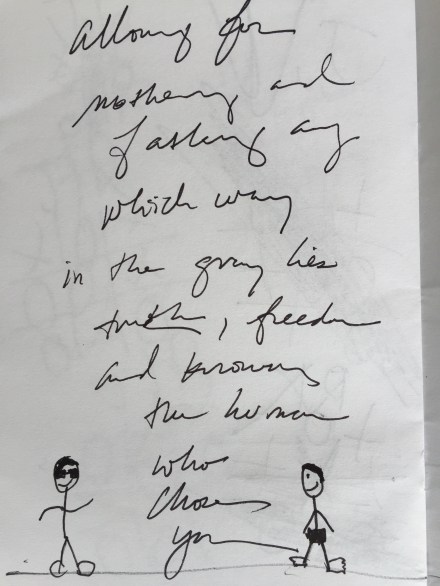 allowing for
mothering and
fathering any
which way
in the gray lies
truth, freedom
and knowing
the human
who
chose
you